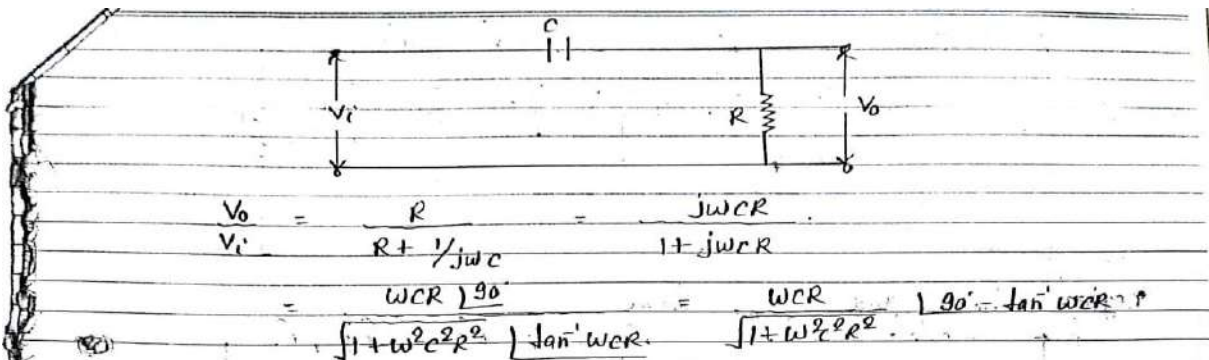 C
Vi R Vo
Vo/Vi = R/(R + 1/jωC) = jωCR/(1 + jωCR)
= ωCR ∠90°/(√(1+ω²C²R²) ∠tan⁻¹ ωCR) = ωCR/√(1+ω²C²R²) ∠90° - tan⁻¹ ωCR